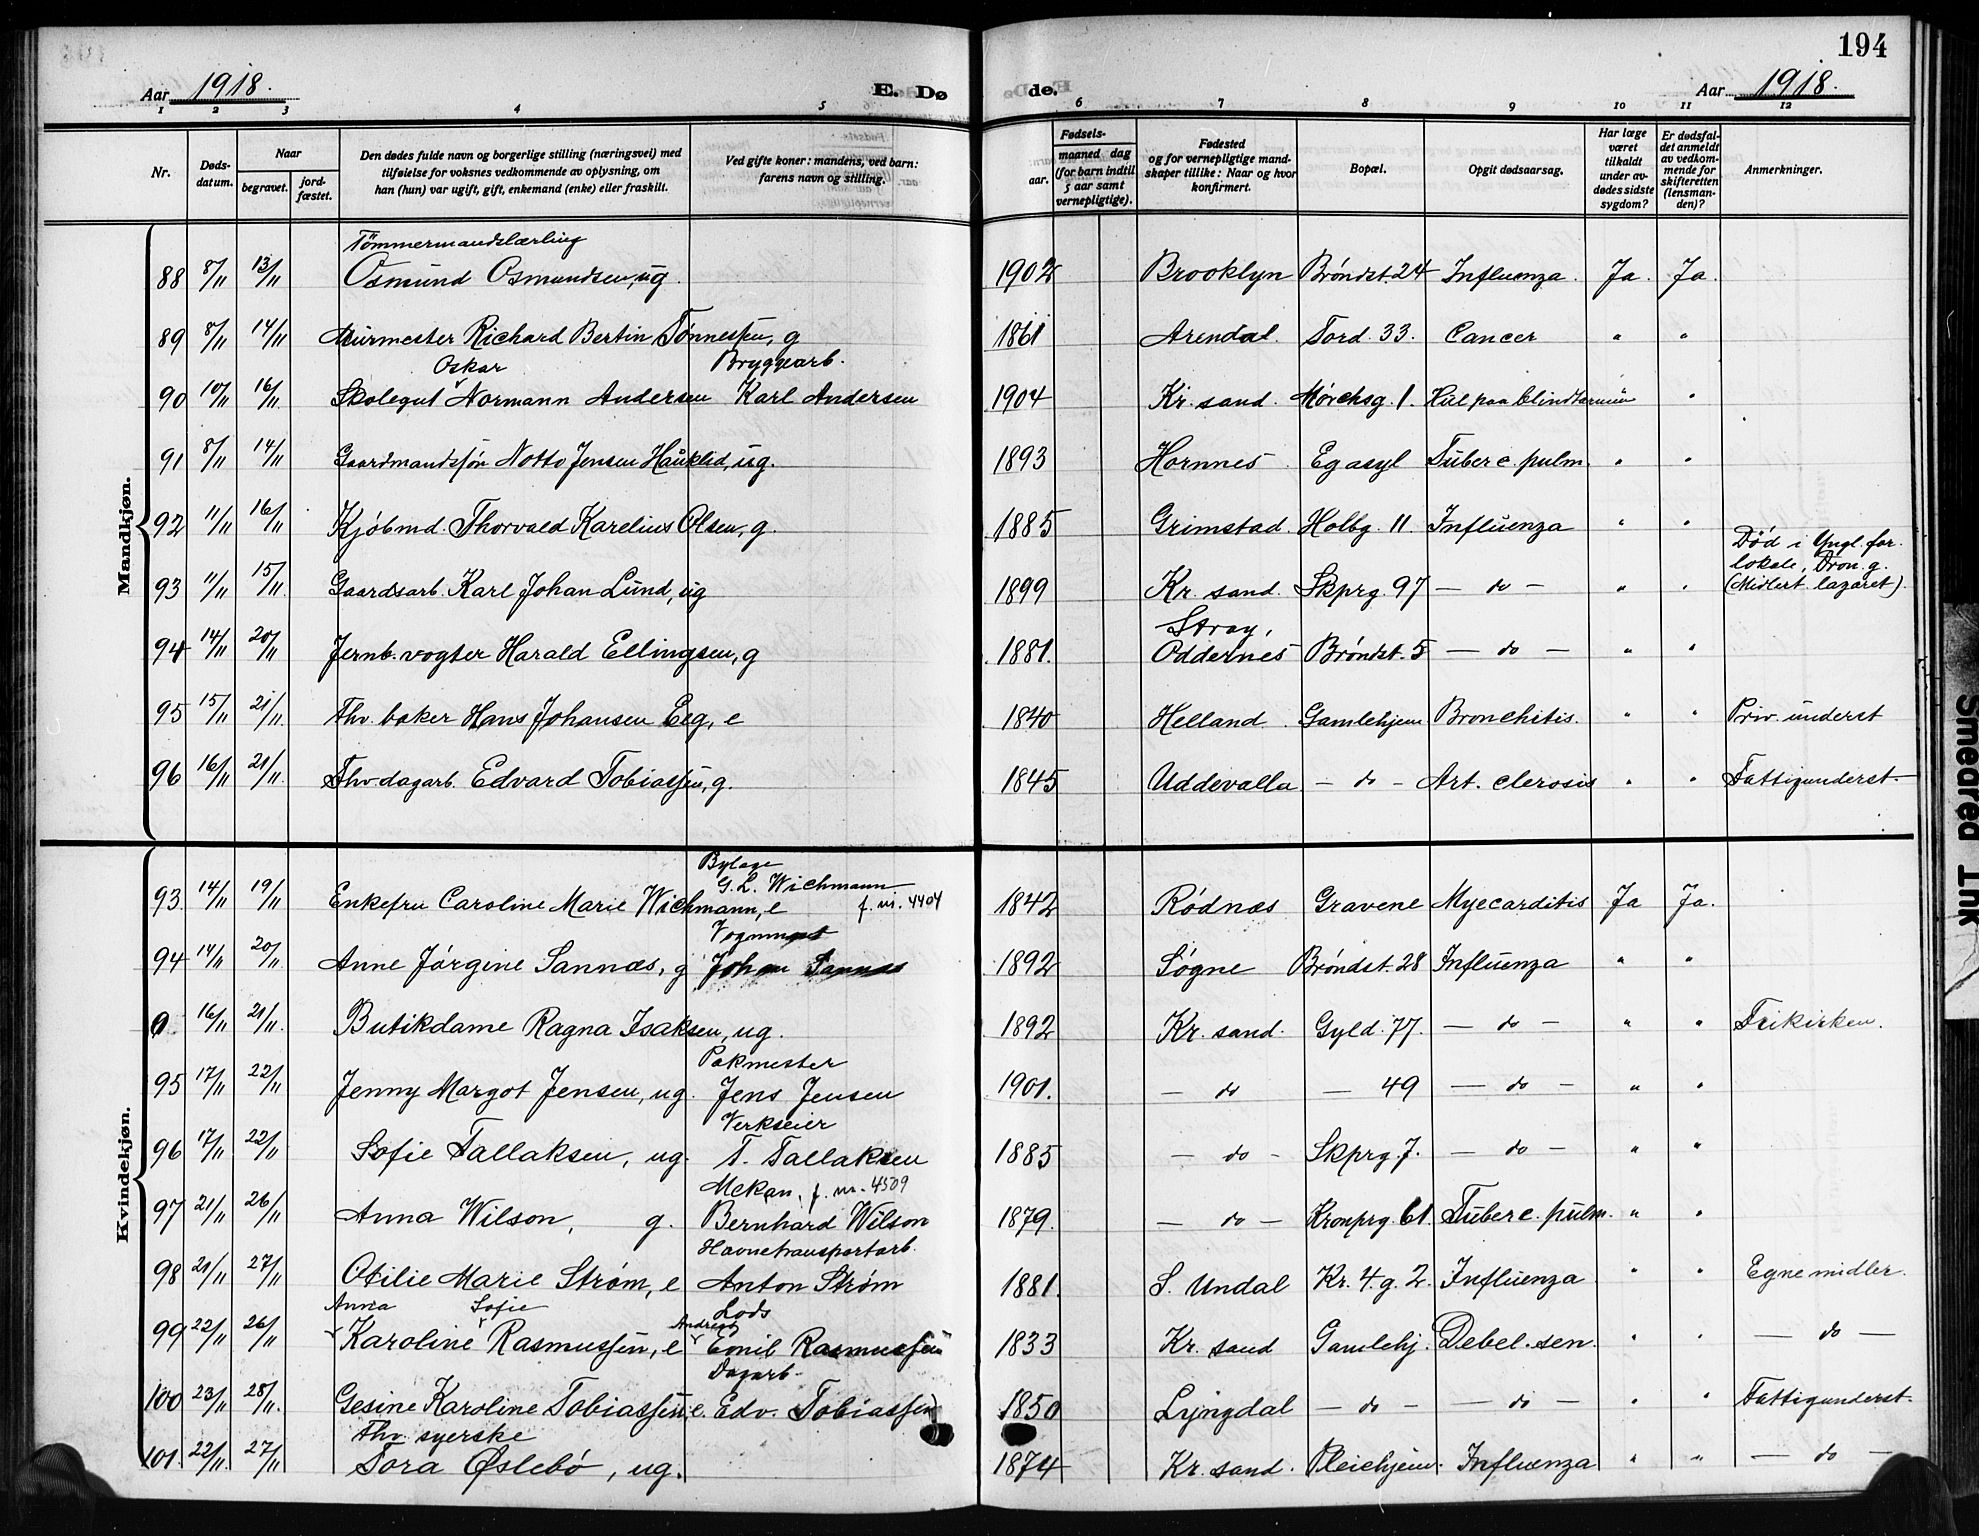 194
Aar 1918.
E. Dø de.
Aar 1918.
1 2 3 4 5 6 7 8 9 10 11 12
Nr.
Døds-
datum.
Naar
begravet.
jord-
fæstet.
Den dødes fulde navn og borgerlige stilling (næringsvei) med
tilføielse for voksnes vedkommende av oplysning, om
han (hun) var ugift, gift, enkemand (enke) eller fraskilt.
Ved gifte koner: mandens, ved barn:
farens navn og stilling.
Fødsels-
aar.
maaned dag
(for barn indtil
5 aar samt
vernepligtige).
Fødested
og for vernepligtige mand-
skaper tillike: Naar og hvor
konfirmert.
Bopæl.
Opgit dødsaarsag.
Har læge
været
tilkaldt
under av-
dødes sidste
sygdom?
Er dødsfal-
det anmeldt
av vedkom-
mende for
skifteretten
(lensman-
den)?
Anmerkninger.
Mandkjøn.
Tömmermandslærling
88 8/11 13/11 Osmund Osmundsen, ug. 1902 Brooklyn Bröndst. 24 Influenza. Ja. Ja.
89 8/11 14/11 Murmester Richard Bertin Tønnessen, g 1861 Arendal. Tord. 33. Cancer " "
Oskar Bryggearb.
90 10/11 16/11 Skolegut Normann Andersen Karl Andersen 1904 Kr. sand. Mørchsg. 1. Hul paa blindtarmen " "
91 8/11 14/11 Gaardmandssøn Notto Jensen Hauklid, ug. 1893 Hornnes Eg asyl Tuberc. pulm. " "
92 11/11 16/11 Kjöbmd. Thorvald Karelius Olsen, g. 1885 Grimstad. Holbg. 11 Influenza " "
Död i Yngl. for.
lokale, Dron. g.
93 11/11 15/11 Gaardsarb. Karl Johan Lund, ug 1899 Kr. sand. Skprg. 97 — do — " " (Midlert. lazaret).
Stray,
94 14/11 20/11 Jernb. vogter Harald Ellingsen, g 1881. Oddernes Bröndst. 5 — do — " "
95 15/11 21/11 Fhv. baker Hans Johansen Eeg, e 1840 Helland. Gamlehjem Bronchitis. " " Priv. underst
96 16/11 21/11. Fhv. dagarb. Edvard Tobiassen, g. 1845 Uddevalla — do — Art. clerosis " " Fattigunderst.
Kvindekjøn.
Byfoge
G. L. Wichmann
93. 14/11 19/11 Enkefru Caroline Marie Wichmann, e f. nr. 4404 1842 Rödnæs Gravene Myecarditis Ja Ja.
94 14/11 20/11 Anne Jörgine Sannæs, g Johan Sannæs 1892 Søgne Bröndst. 28 Influenza " "
0. 16/11 21/11. Butikdame Ragna Isaksen, ug. 1892 Kr. sand. Gyld. 77. — do — " " Frikirken.
Pakmester
95 17/11 22/11 Jenny Margot Jensen, ug. Jens Jensen 1901. — do — 49 — do — " "
Verkseier
96 17/11 22/11 Sofie Tallaksen, ug. T. Tallaksen 1885 — do — Skprg. 7. — do — " "
Mekan. f. nr. 4509
97 21/11 26/11 Anna Wilson, g. Bernhard Wilson 1879. — do — Kronprg. 61. Tuberc. pulm. " "
Havnetransportarb.
98 21/11 27/11 Otilie Marie Strøm, e Anton Strøm 1881. S. Undal Kr. 4. g. 2. Influenza " " Egne midler.
Anna Sofie Lods
Andreas
99 22/11 26/11 Karoline Rasmussen, e Emil Rasmussen 1833 Kr. sand Gamlehj. Debel. sen. " " — do —
Dagarb.
100 23/11 28/11. Gesine Karoline Tobiassen, e. Edv. Tobiassen 1850 Lyngdal — do — — do — " " Fattigunderst.
Fhv. syerske
101. 22/11. 27/11 Tora Øslebö, ug. 1874 Kr. sand. Pleiehjem. Influenza " " — do —
Smeared Ink